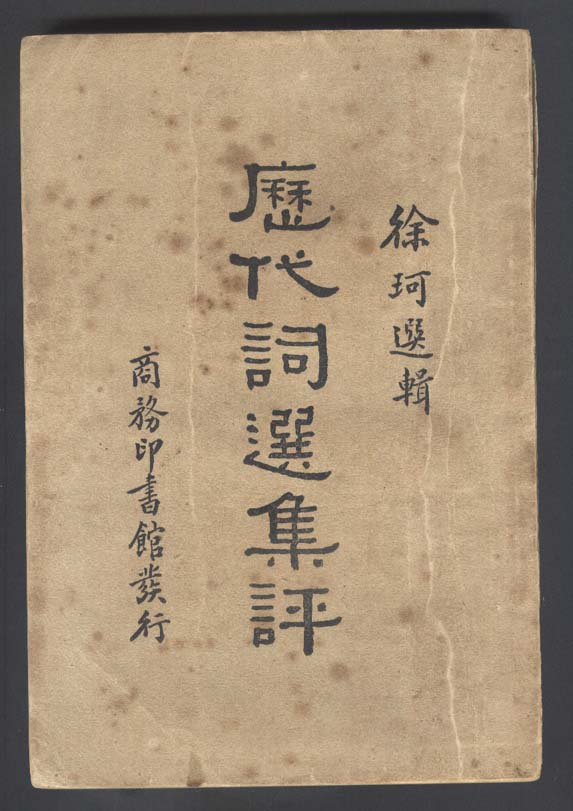 徐珂選輯
歷代詞選集評
商務印書館發行